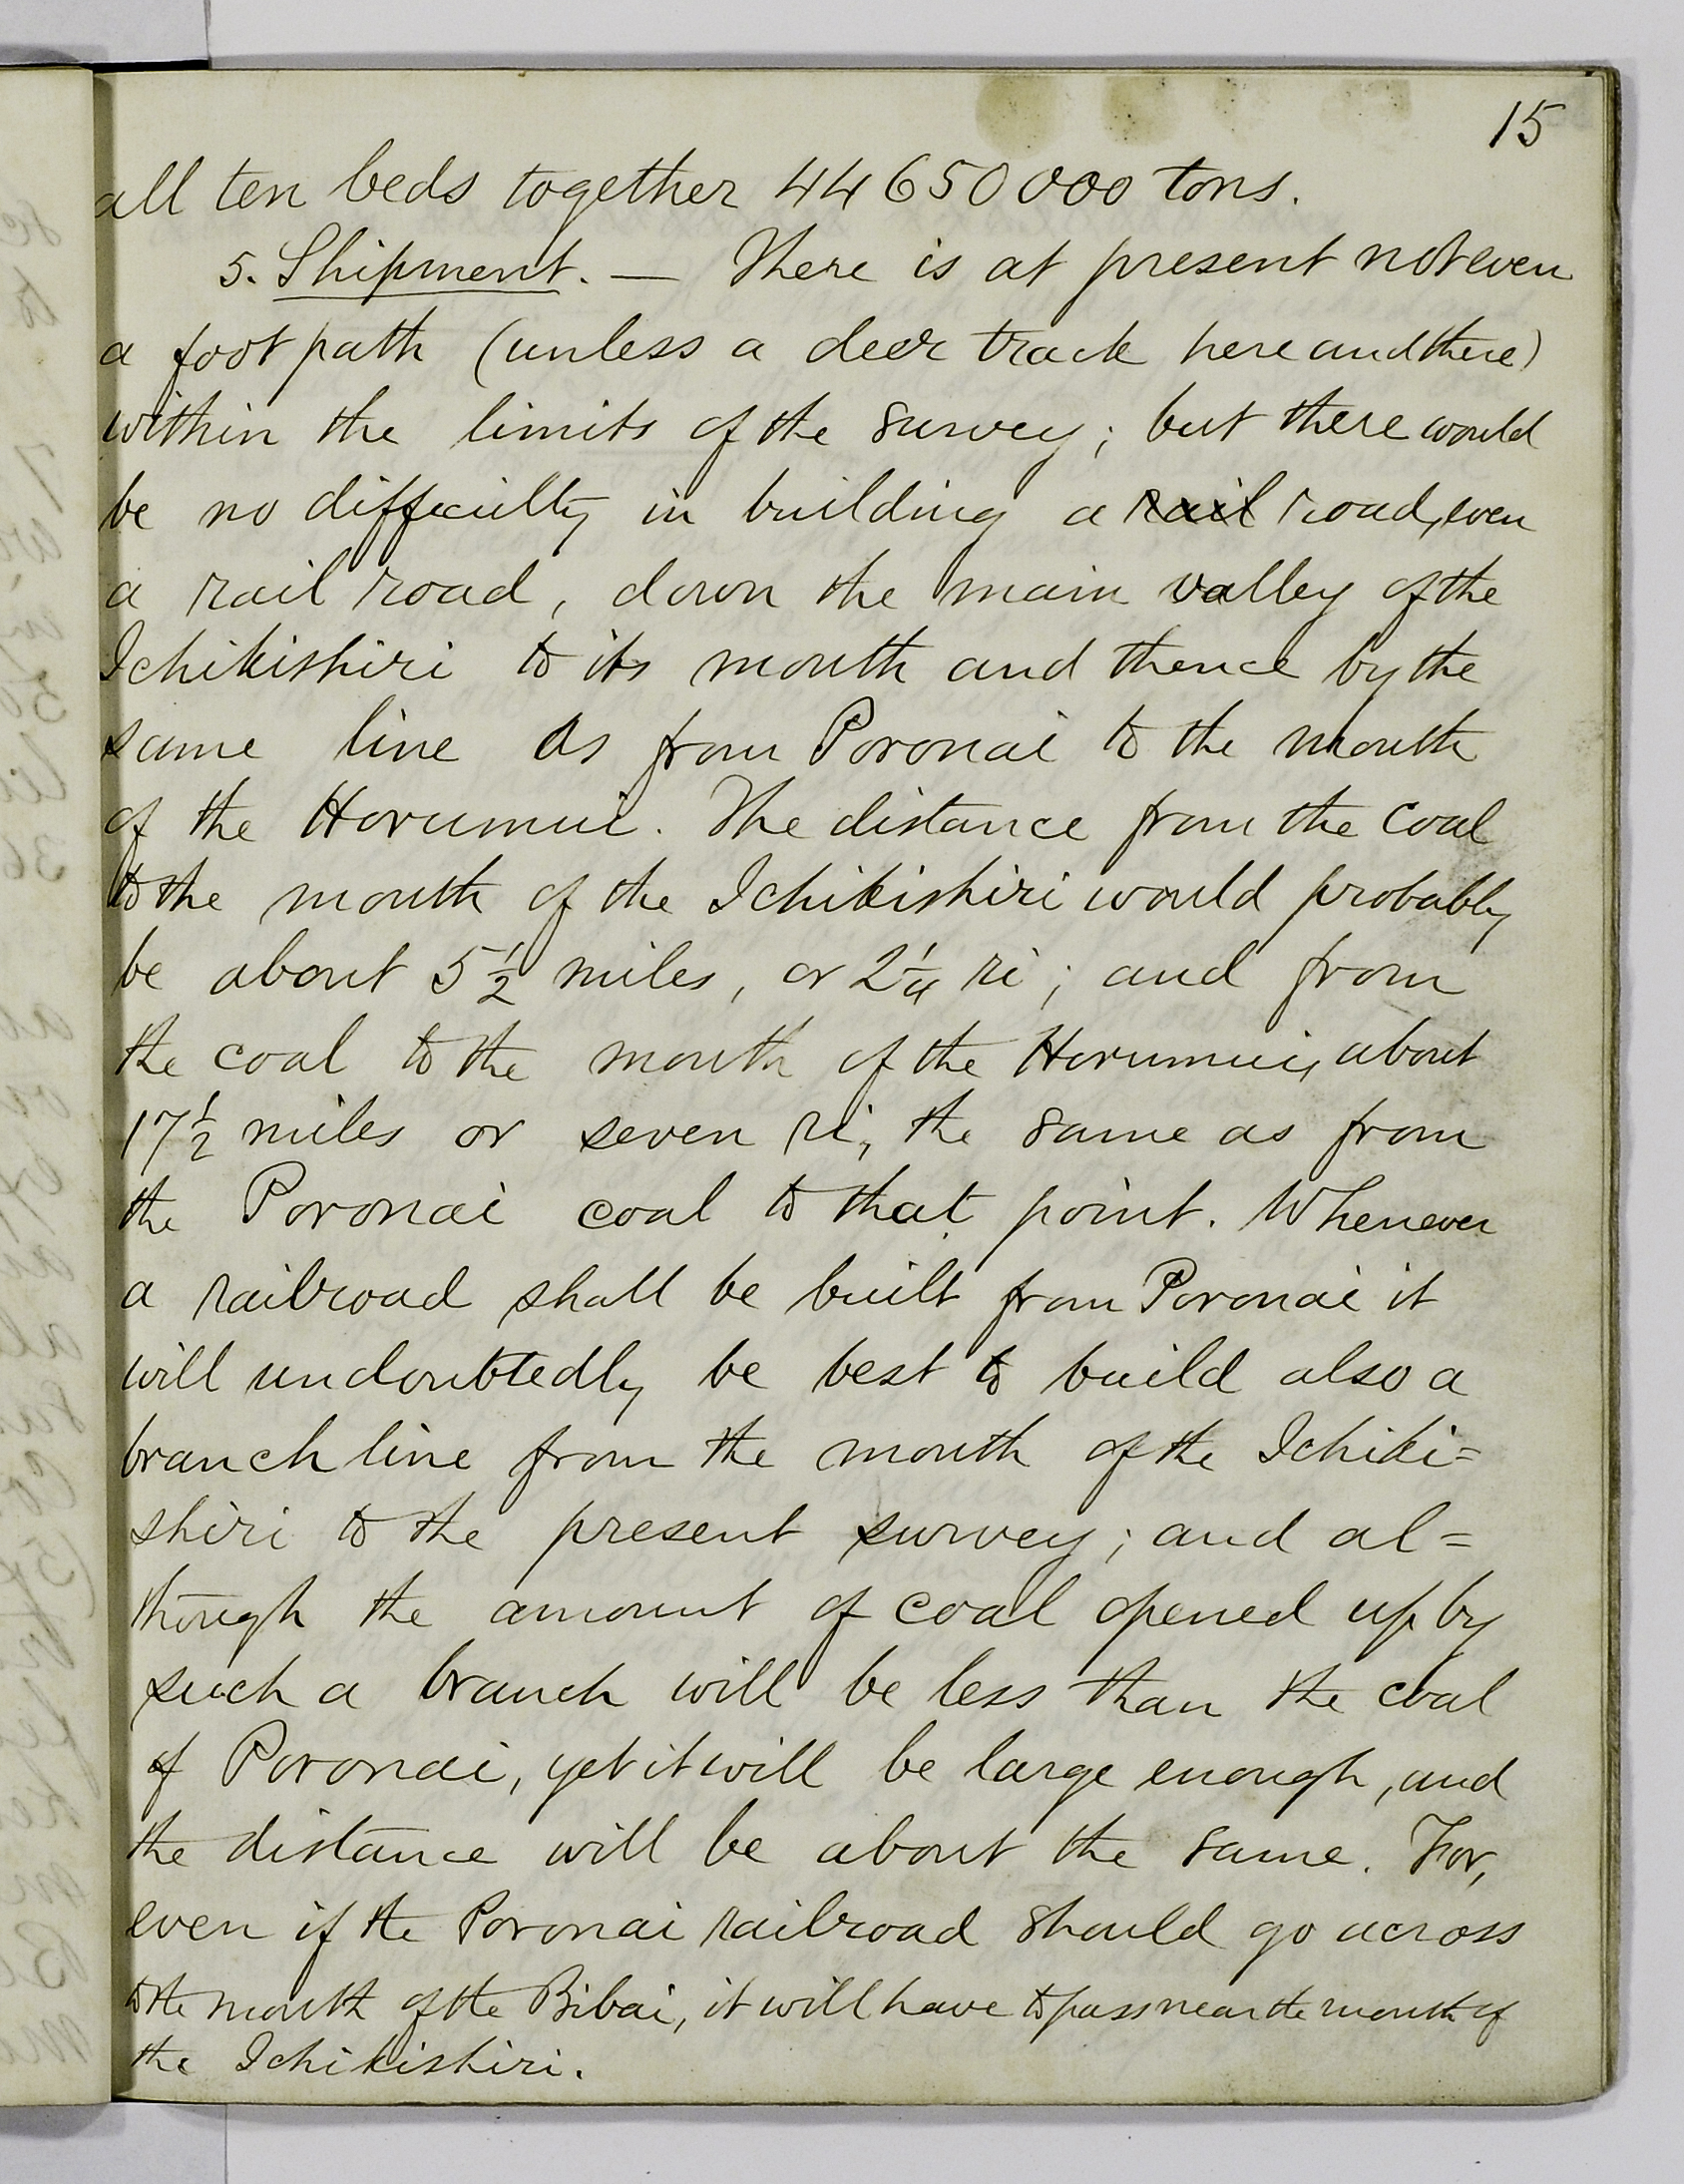 15
all ten beds together 44650000 tons.
5. Shipment. — There is at present not even
a foot path (unless a deer track here and there)
within the limits of the survey; but there would
be no difficulty in building a rail road, even
a rail road, down the main valley of the
Ichikishiri to its mouth and thence by the
same line as from Poronai to the mouth
of the Horumui. The distance from the coal
to the mouth of the Ichikishiri would probably
be about 5 1/2 miles, or 2 1/4 ri; and from
the coal to the mouth of the Horumui, about
17 1/2 miles or seven ri, the same as from
the Poronai coal to that point. Whenever
a railroad shall be built from Poronai it
will undoubtedly be best to build also a
branch line from the mouth of the Ichiki=
shiri to the present survey; and al=
though the amount of coal opened up by
such a branch will be less than the coal
of Poronai, yet it will be large enough, and
the distance will be about the same. For,
even if the Poronai railroad should go across
to the mouth of the Bibai, it will have to pass near the mouth of
the Ichikishiri.